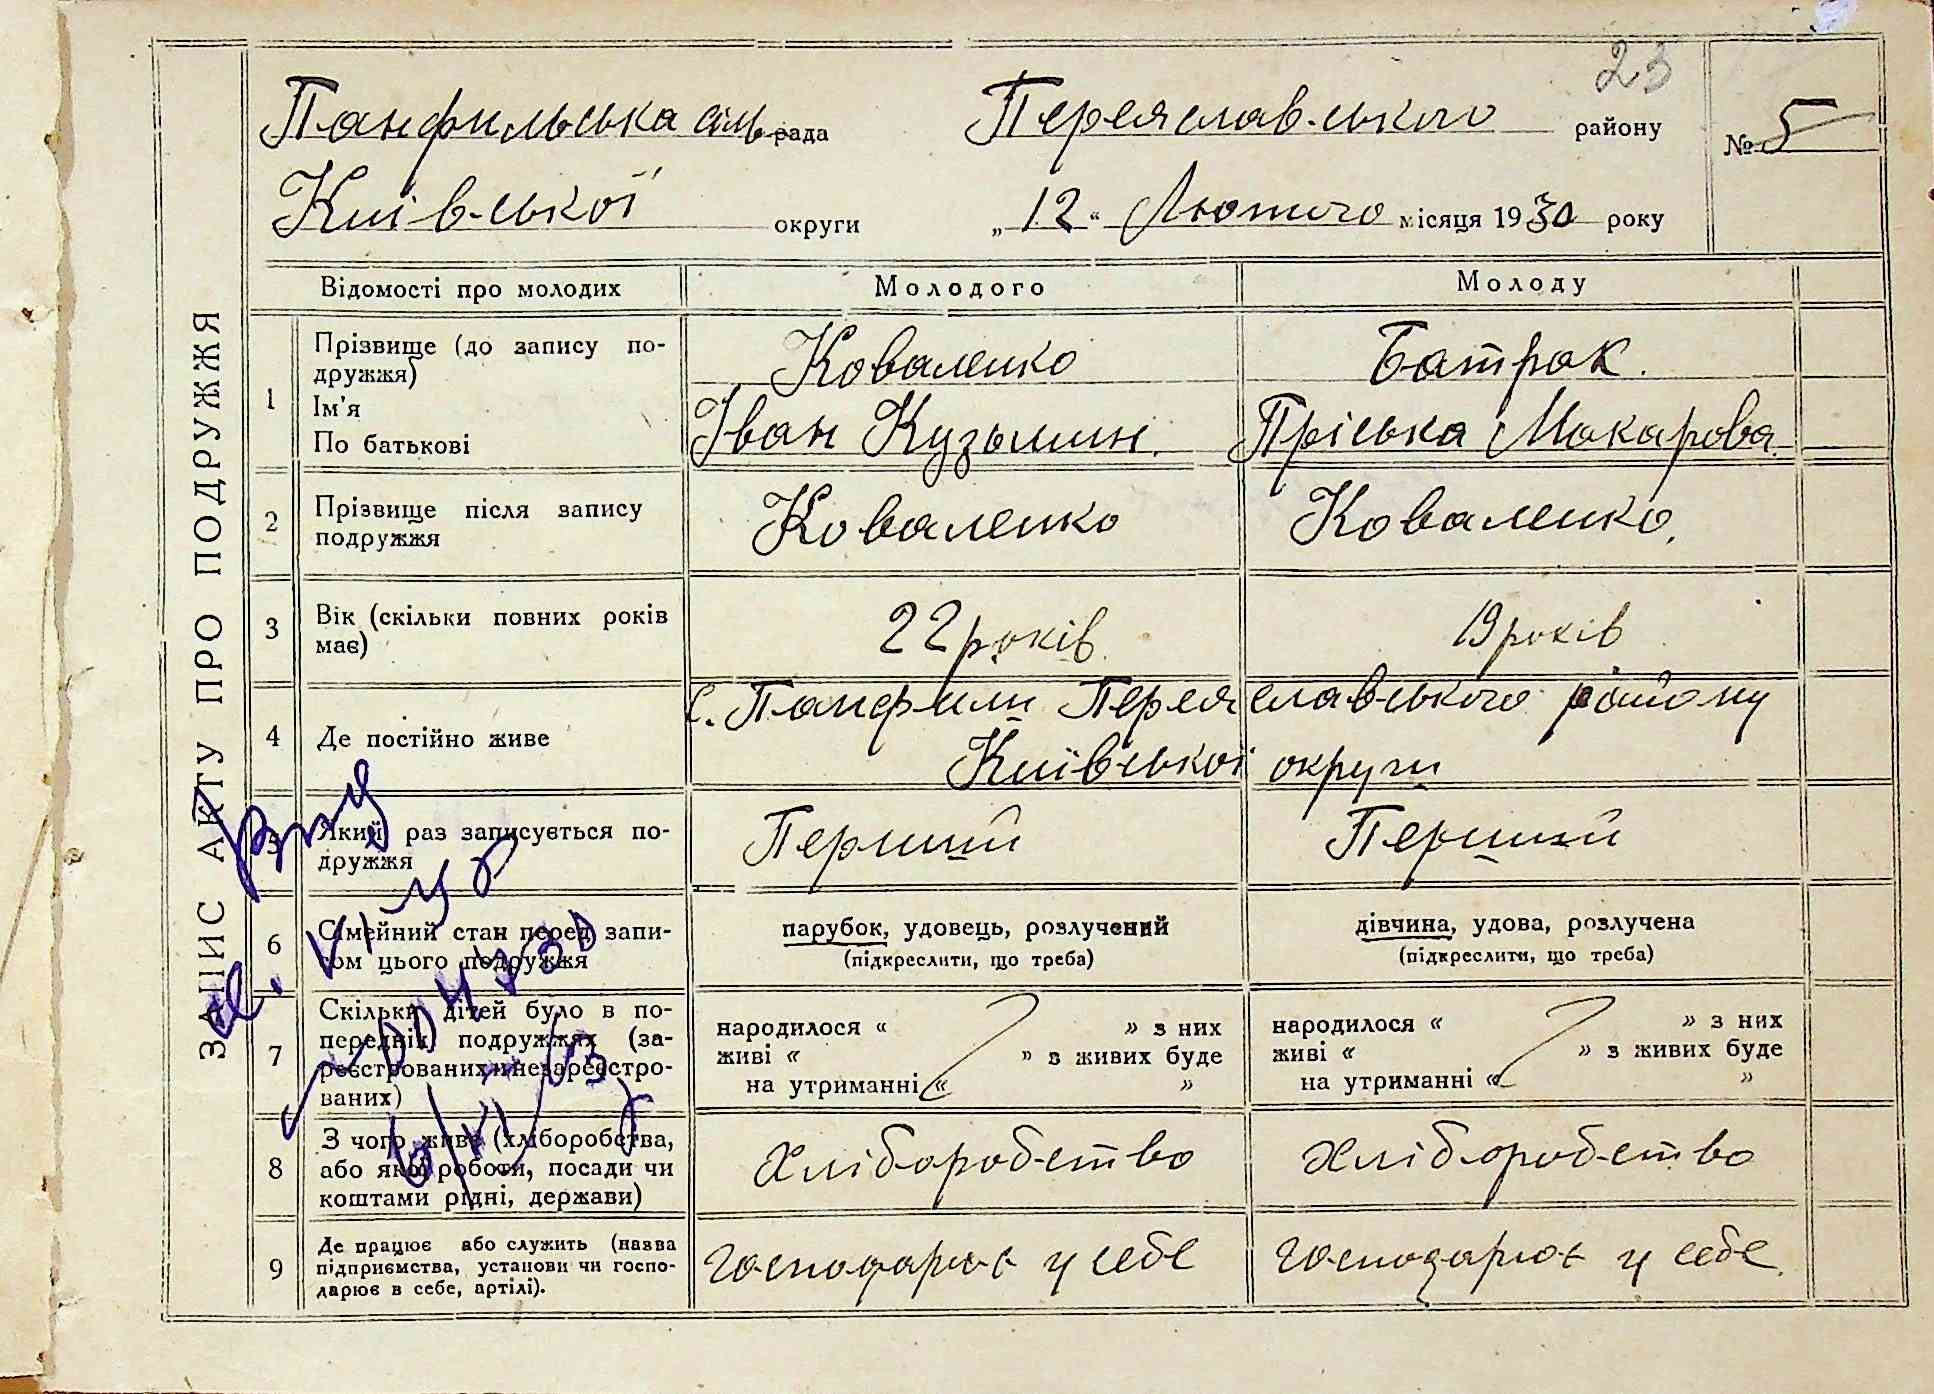 23
Панфильська сільрада Переяславського району № 5
Київської округи „12“ Лютого місяця 1930 року
ЗАПИС АКТУ ПРО ПОДРУЖЖЯ
Відомості про молодих Молодого Молоду
1 Прізвище (до запису по-
дружжя) Коваленко Батрак.
Ім'я
По батькові Іван Кузьмин. Пріська Макарова.
2 Прізвище після запису
подружжя Коваленко Коваленко.
3 Вік (скільки повних років
має) 22 років 19 років
4 Де постійно живе с. Панфили Переяславського району
Київської округи
5 Який раз записується по-
дружжя Перший Перший
6 Сімейний стан перед запи-
сом цього подружжя
парубок, удовець, розлучений
(підкреслити, що треба)
дівчина, удова, розлучена
(підкреслити, що треба)
7 Скільки дітей було в по-
передніх подружжях (за-
реєстрованих и незареєстро-
ваних)
народилося “ ” з них
живі “ ” з живих буде
на утриманні “ ”
народилося “ ” з них
живі “ ” з живих буде
на утриманні “ ”
8 З чого живе (хліборобства,
або якої роботи, посади чи
коштами рідні, держави)
Хліборобство Хліборобство
9 Де працює або служить (назва
підприємства, установи чи госпо-
дарює в себе, артілі).
господарює у себе господарює у себе